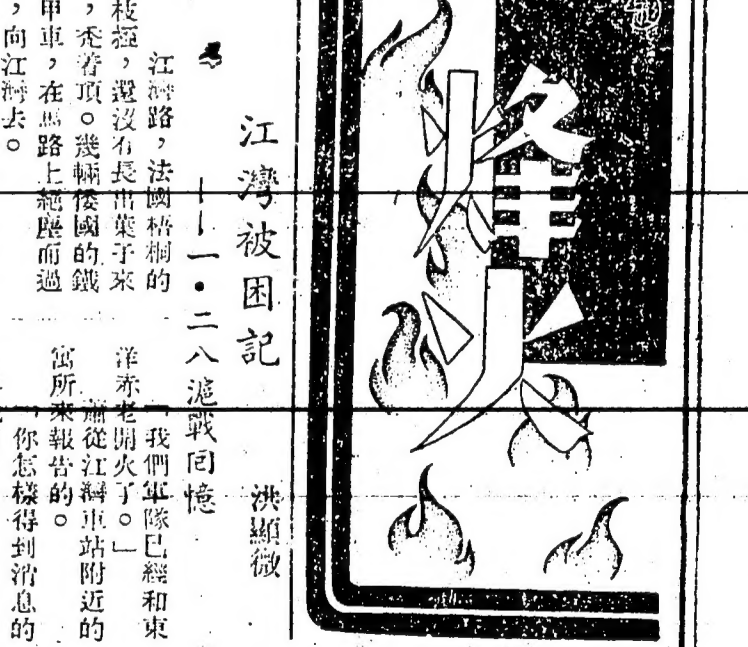 烽火
江灣被困記
——一•二八滬戰回憶
洪顯微
江灣路，法國梧桐的
枝椏，還沒有長出葉子來
，禿着頂。幾輛倭國的鐵
甲車，在馬路上絕塵而過
，向江灣去。
「我們軍隊已經和東
洋赤老開火了。」
蕭從江灣車站附近的
寓所來報告的。
「你怎樣得到消息的